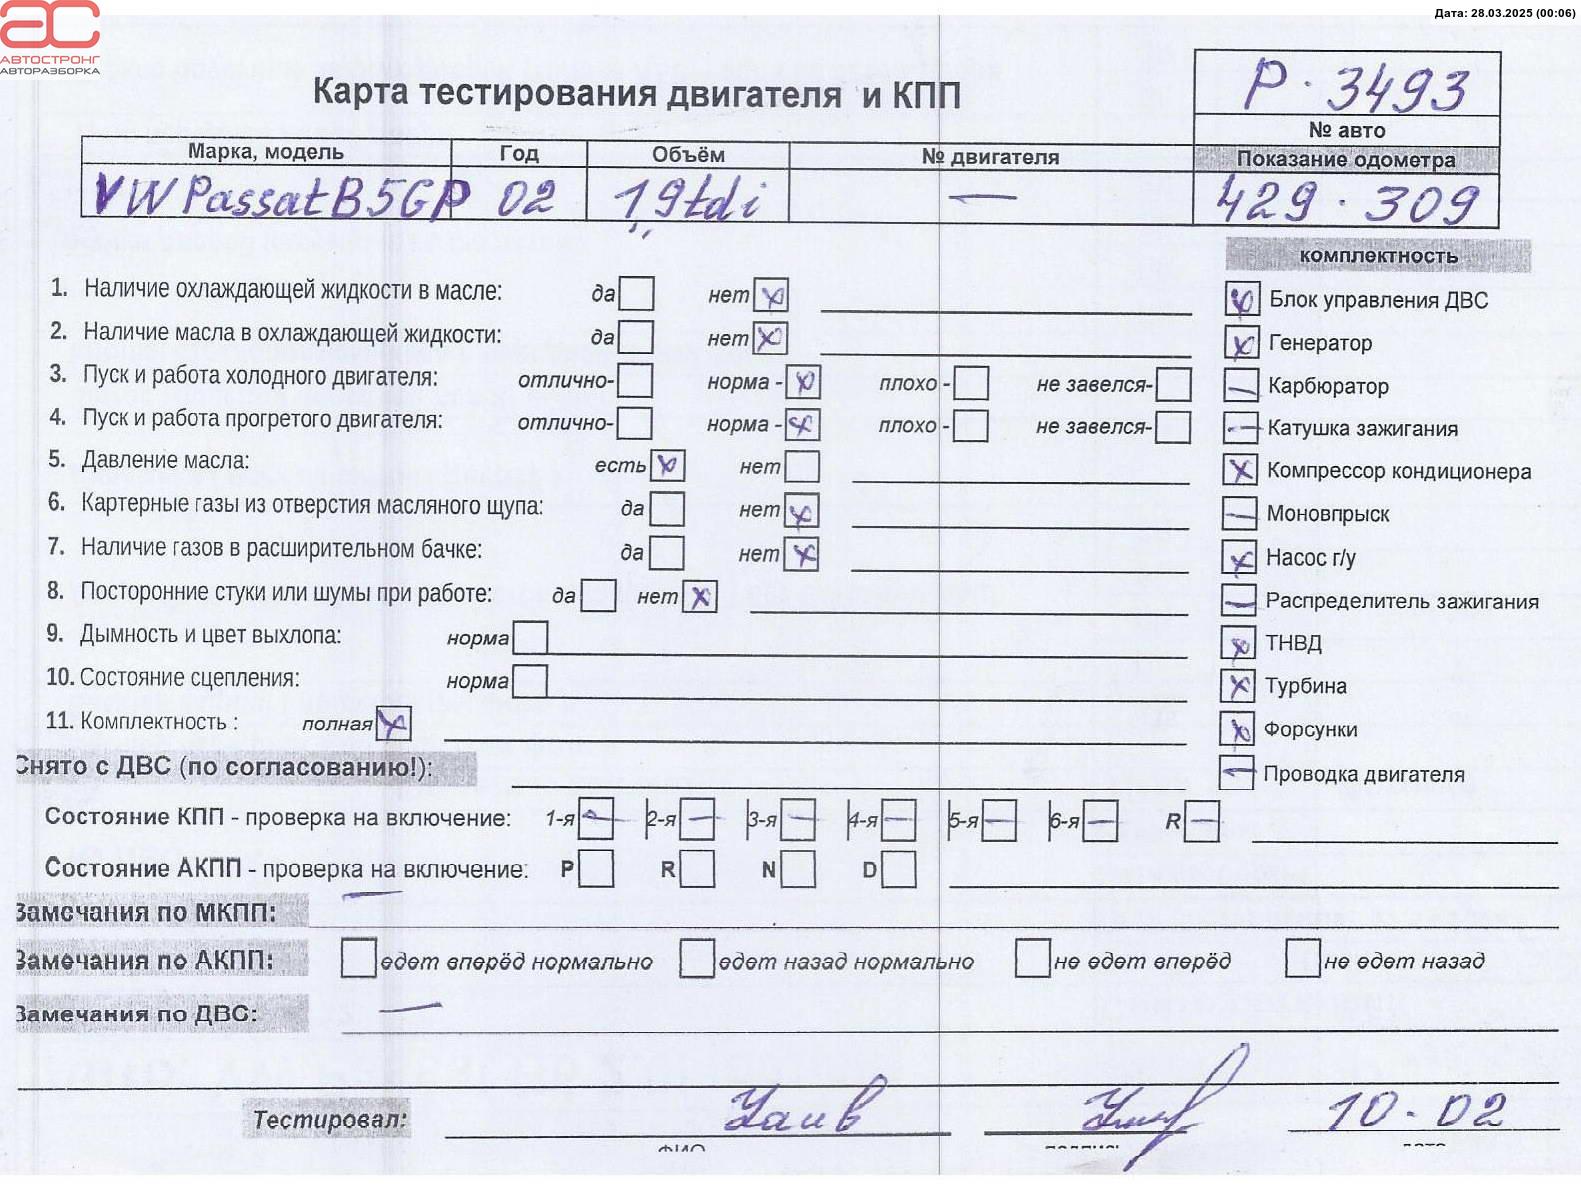 Дата: 28.03.2025 (00:06)
АС
АВТОСТРОНГ
АВТОРАЗБОРКА
Карта тестирования двигателя и КПП
P · 3493
№ авто
Марка, модель Год Объём № двигателя Показание одометра
VW Passat B5GP 02 1,9tdi — 429 · 309
комплектность
1. Наличие охлаждающей жидкости в масле: да нет x
2. Наличие масла в охлаждающей жидкости: да нет x
3. Пуск и работа холодного двигателя: отлично- норма - x плохо - не завелся-
4. Пуск и работа прогретого двигателя: отлично- норма - x плохо - не завелся-
5. Давление масла: есть x нет
6. Картерные газы из отверстия масляного щупа: да нет x
7. Наличие газов в расширительном бачке: да нет x
8. Посторонние стуки или шумы при работе: да нет x
9. Дымность и цвет выхлопа: норма
10. Состояние сцепления: норма
11. Комплектность : полная x
x Блок управления ДВС
x Генератор
— Карбюратор
— Катушка зажигания
x Компрессор кондиционера
— Моновпрыск
x Насос г/у
— Распределитель зажигания
x ТНВД
x Турбина
x Форсунки
— Проводка двигателя
Снято с ДВС (по согласованию!):
Состояние КПП - проверка на включение: 1-я — 2-я — 3-я — 4-я — 5-я — 6-я — R —
Состояние АКПП - проверка на включение: P R N D
Замечания по МКПП: —
Замечания по АКПП: едет вперёд нормально едет назад нормально не едет вперёд не едет назад
Замечания по ДВС: —
Тестировал: 10-02
ФИО подпись дата